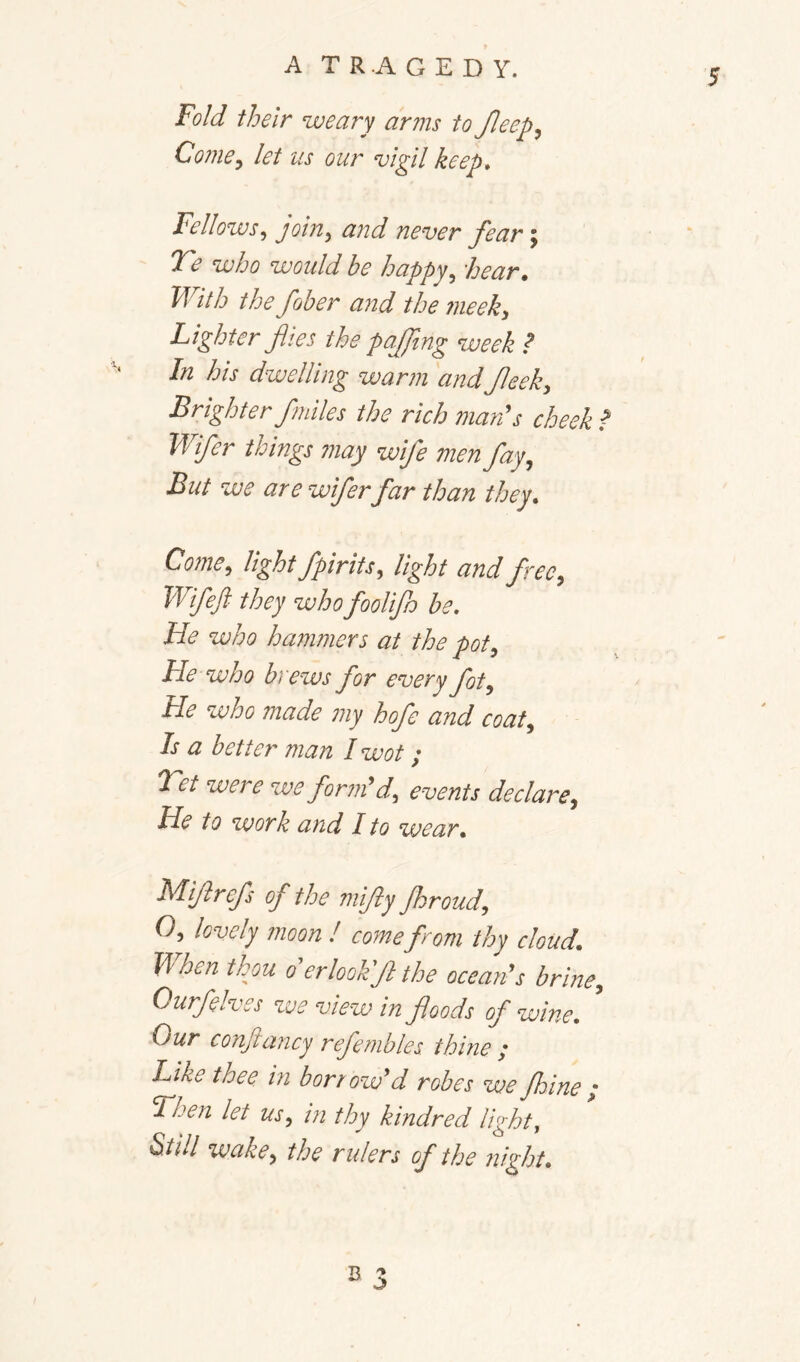 A TRAGEDY.
5
Fold their weary arms to ſleep,
Come, let us our vigil keep.
Fellows, join, and never fear;
Ye who would be happy, hear.
With the ſober and the meek,
Lighter flies the paſſing week?
In his dwelling warm and ſleek,
Brighter ſmiles the rich man's cheek?
Wiſer things may wiſe men ſay,
But we are wiſer far than they.
Come, light ſpirits, light and free,
Wiſeſt they who fooliſh be.
He who hammers at the pot,
He who brews for every ſot,
He who made my hoſe and coat,
Is a better man I wot;
Yet were we form'd, events declare,
He to work and I to wear.
Miſtreſs of the miſty ſhroud,
O, lovely moon! come from thy cloud.
When thou o'erlook'ſt the ocean's brine,
Ourſelves we view in floods of wine.
Our conſtancy reſembles thine;
Like thee in borrow'd robes we ſhine;
Then let us, in thy kindred light,
Still wake, the rulers of the night.
B 3